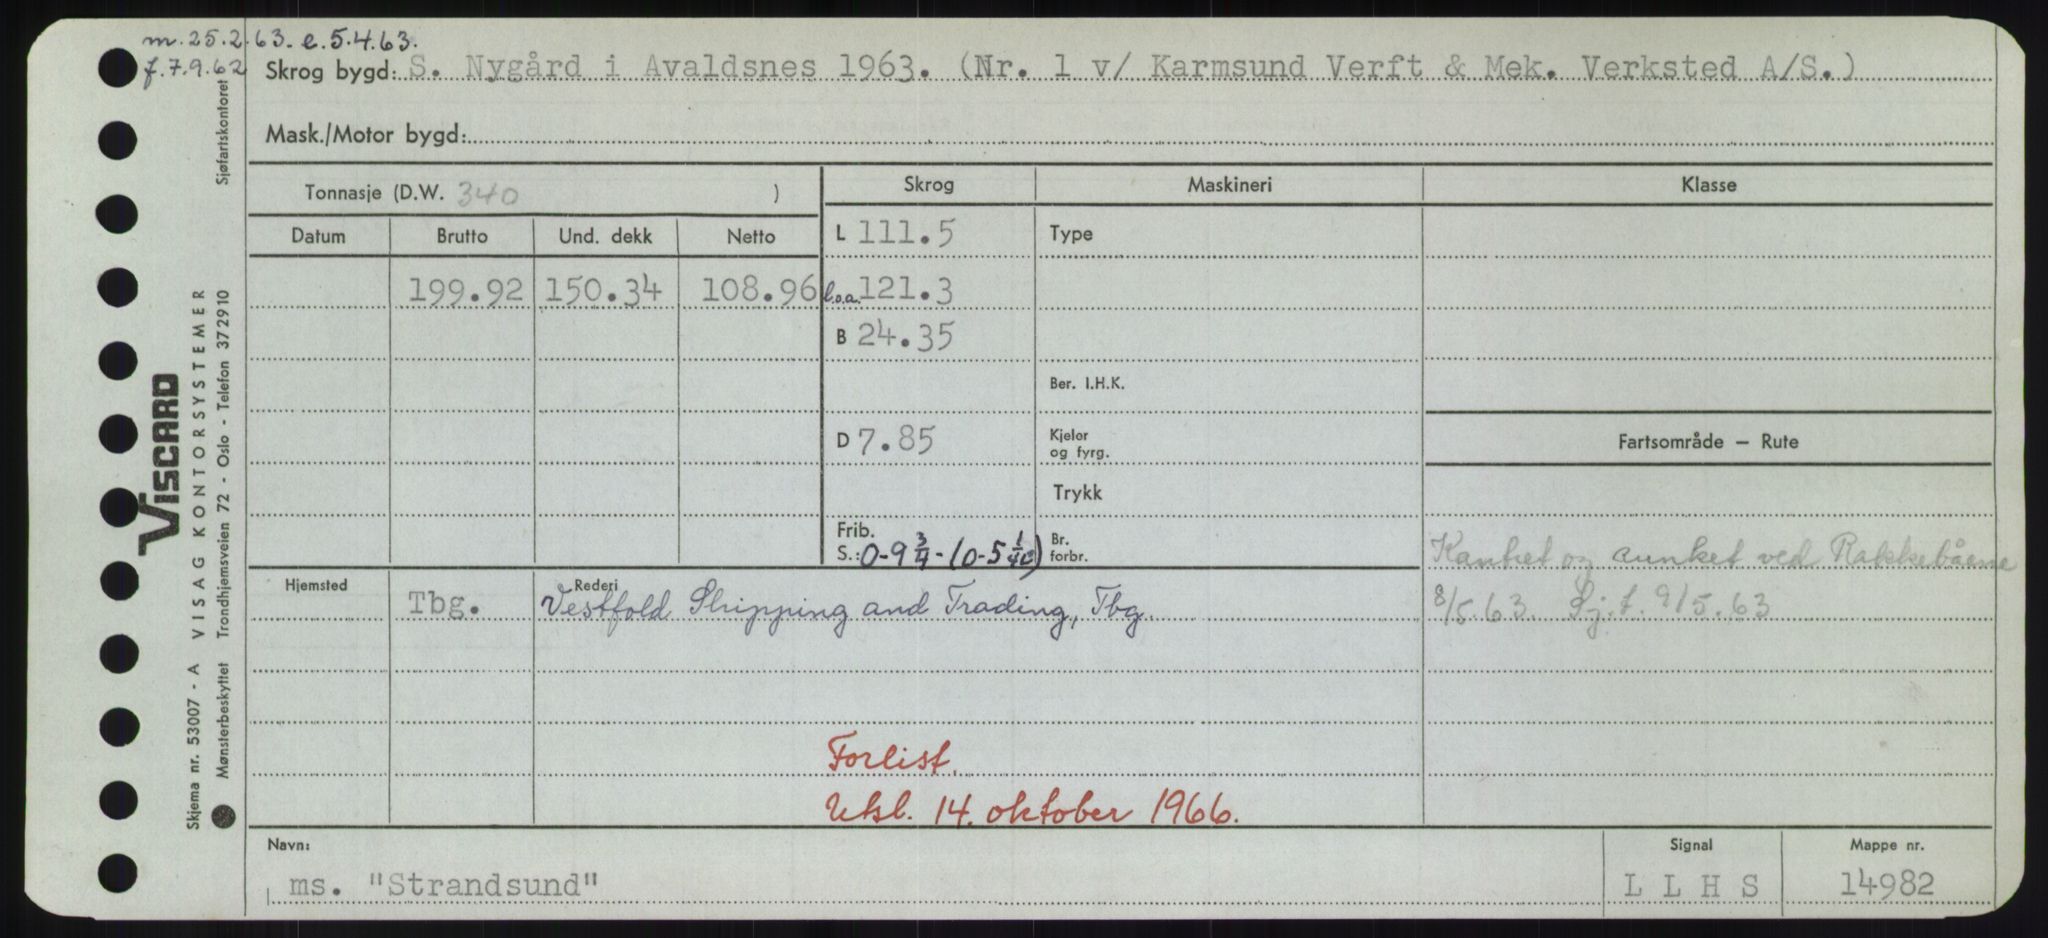 m. 25.2.63. e. 5.4.63.
f. 7.9.62
Skrog bygd: S. Nygård i Avaldsnes 1963. (Nr. 1 v/ Karmsund Verft & Mek. Verksted A/S.)
Mask./Motor bygd:
Tonnasje (D.W. 340 )
Skrog Maskineri Klasse
Datum Brutto Und. dekk Netto
L 111.5 Type
199.92 150.34 108.96 l.o.a. 121.3
B 24.35
Ber. I.H.K.
D 7.85 Kjeler og fyrg.
Fartsområde — Rute
Trykk
Frib.
S.: 0-9 3/4 - (0-5 1/4) Br. forbr.
Kantret og sunket ved Rakkebåene
8/5.63. Sj.f. 9/5.63
Hjemsted Tbg. Rederi Vestfold Shipping and Trading, Tbg.
Forlist.
Utsl. 14. oktober 1966.
Navn: Signal Mappe nr.
ms. "Strandsund" L L H S 14982
Skjema nr. 53007 - A VISAG KONTORSYSTEMER
VISCARD
Mønsterbeskyttet Trondhjemsveien 72 - Oslo - Telefon 372910
Sjøfartskontoret